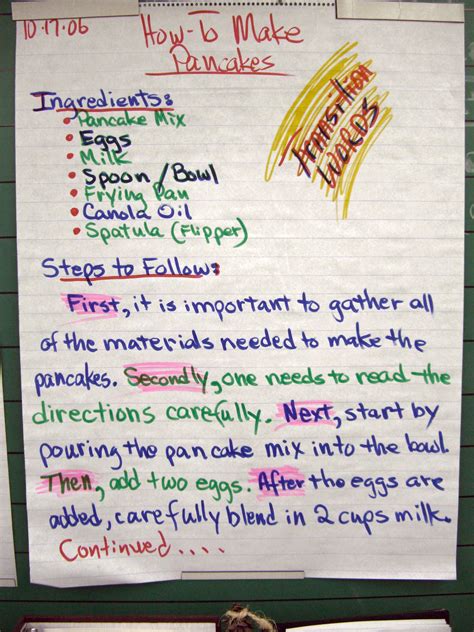 10.17.06
How-To Make
Pancakes
Transition
Words
Ingredients:
• Pancake Mix
• Eggs
• Milk
• Spoon/Bowl
• Frying Pan
• Canola Oil
• Spatula (Flipper)
Steps to Follow:
First, it is important to gather all
of the materials needed to make the
pancakes. Secondly, one needs to read the
directions carefully. Next, start by
pouring the pancake mix into the bowl.
Then, add two eggs. After the eggs are
added, carefully blend in 2 cups milk.
Continued....